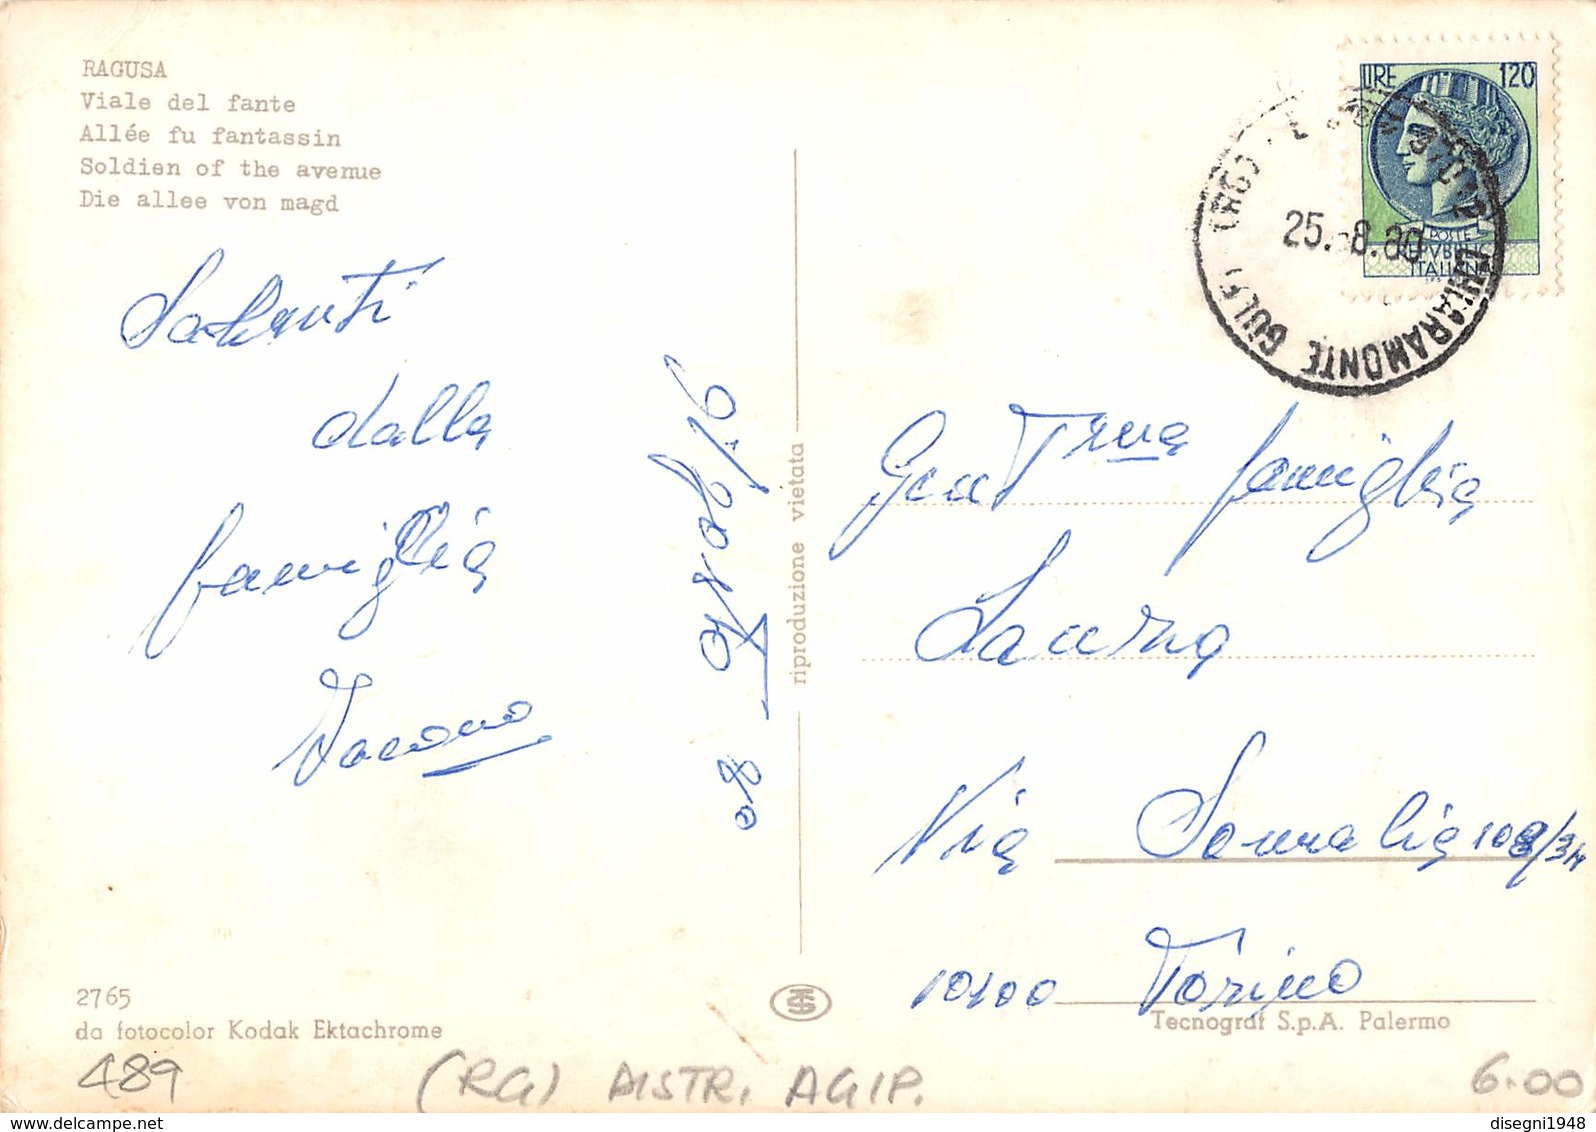 RAGUSA
Viale del fante
Allée fu fantassin
Soldien of the avenue
Die allee von magd
Saluti
dalla
famiglia
Iacono
08
riproduzione vietata
LIRE 120
POSTE
REPVBBLICA
ITALIANA
25. 8.80
CHIARAMONTE GULFI (RG)
Gent.ma famiglia
Via Somalia 108/34
10100 Torino
2765
da fotocolor Kodak Ektachrome
Tecnograf S.p.A. Palermo
489
(RG) DISTR. AGIP.
6.00
disegni1948